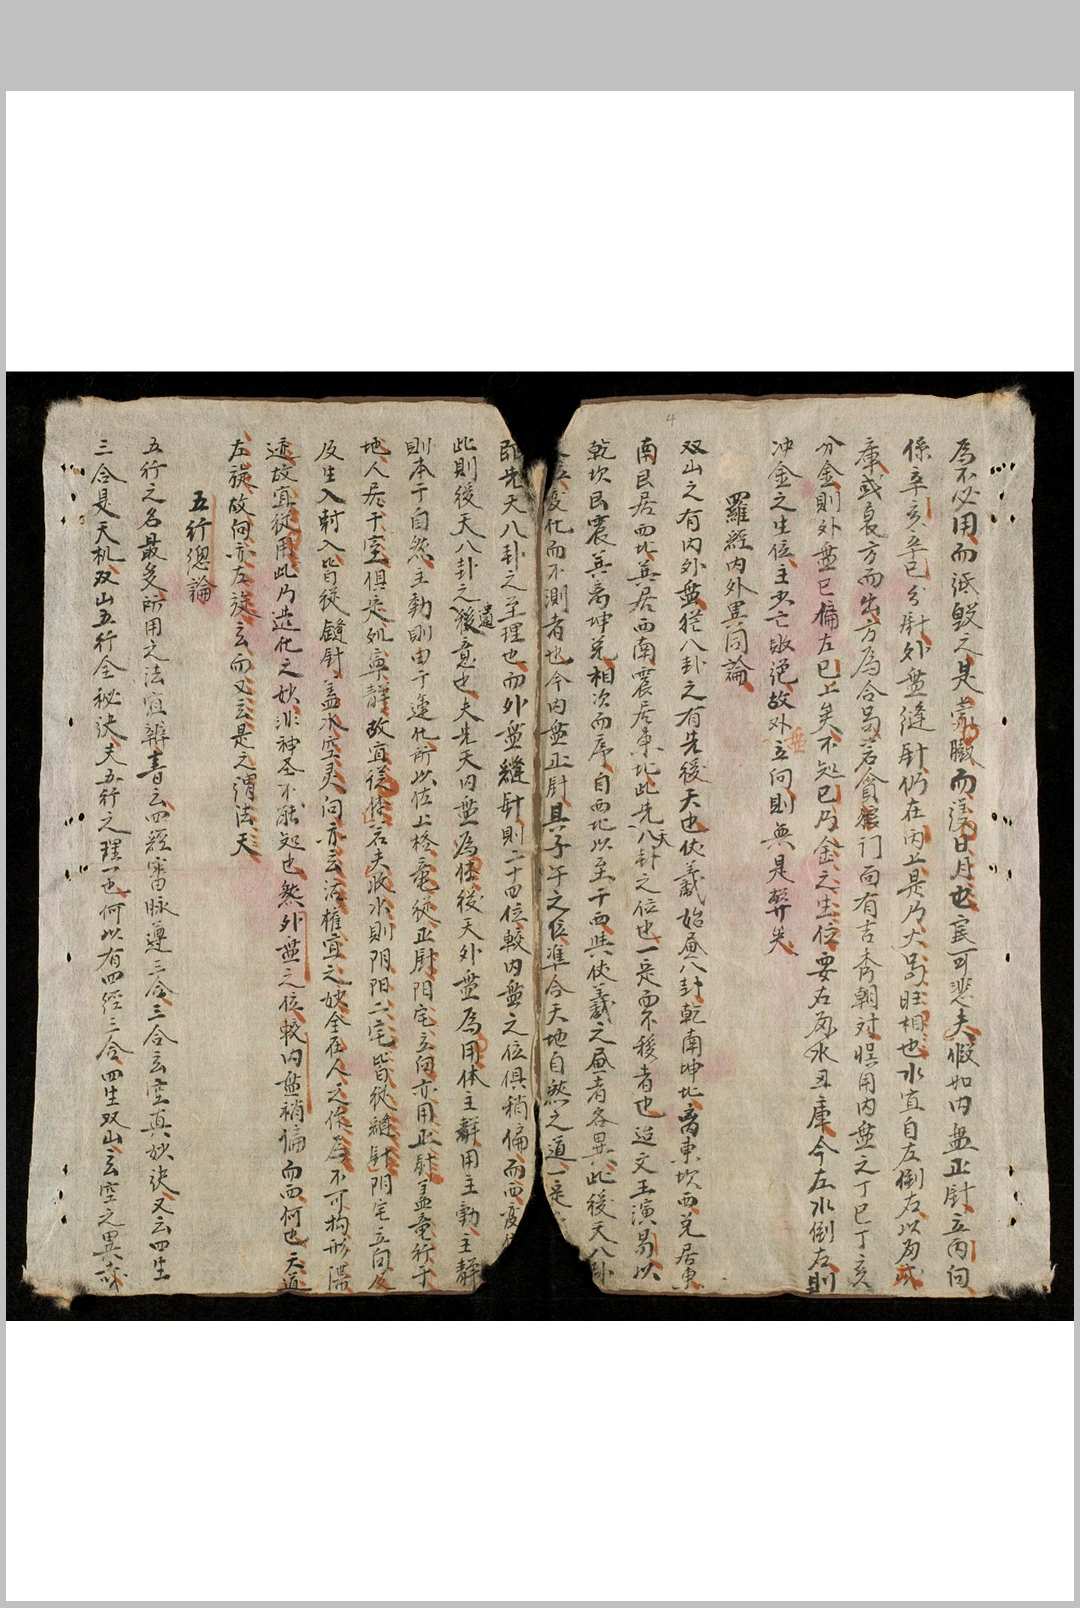 為不必用而泜毀之是蒙瞇而誤日月也寔可悲夫假如内盤正尉立丙向
係辛亥辛巳分尉外盤縫尉仍在丙上是乃大局旺相也水宜自左倒右以为戌
庫或衰方而出方為合局若貪 门而有吉秀朝对悞用内盤之丁巳丁亥
分金則外盤已偏左巳上矣不知巳乃金之生位要右为水丑庫今左水倒左則
冲金之生位主少亡敗绝故外盤立向則無是弊矣
羅經内外異同論
双山之有内外盤猶八卦之有先後天也伏羲始画八卦乾南坤北离東坎西兑居東
南艮居西北巽居西南震居東北此先天八卦之位也一定而不移者也迨文王演易以
乾坎艮震巽离坤兑相次而序自西北以至于西與伏羲之画者各異此後天八卦
变化而不測者也今内盤正尉具子午之位準合天地自然之道一定
即先天八卦之至理也而外盤縫针則二十四位較内盤之位俱稍偏而西变
此則後天八卦之遺意也夫先天内盤為体後天外盤為用体主静用主動主静
則本于自然主動則由于運化所以佐上格竜從正尉阳宅立向亦用正尉盖竜行于
地人居于室俱是処寧静故宜從 若夫收水則阴阳二宅皆從縫针阴宅立向及
反生入尅入皆從縫尉盖水空灵向亦云活權宜之妙全在人之作為不可拘形滯
迹故宜從用此乃造化之妙非神圣不能知也然外盤之位較内盤稍偏而西何也天道
左旋故向亦左旋云而又云是之谓法天
五行總論
五行之名最多所用之法宜辨書云四經審脉遵三合三合云空真妙诀又云四生
三合是天机双山五行全秘诀夫五行之理一也何以有四經三合四生双山玄空之異哉